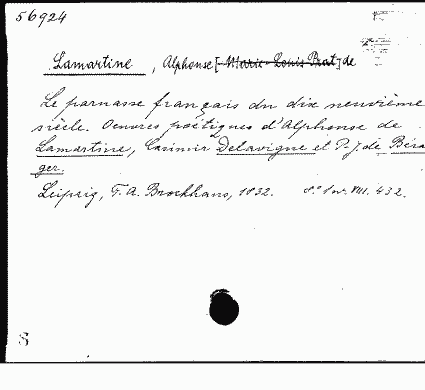 56924
Lamartine, Alphonse [-Marie-Louis Prat] de
Le parnasse français du dix neuvième
siècle. Oeuvres poétiques d'Alphonse de
Lamartine, Casimir Delavigne et P. J. de Béra
ger.
Leipzig, F. A. Brockhaus, 1832. 8° VIII. 432.
S